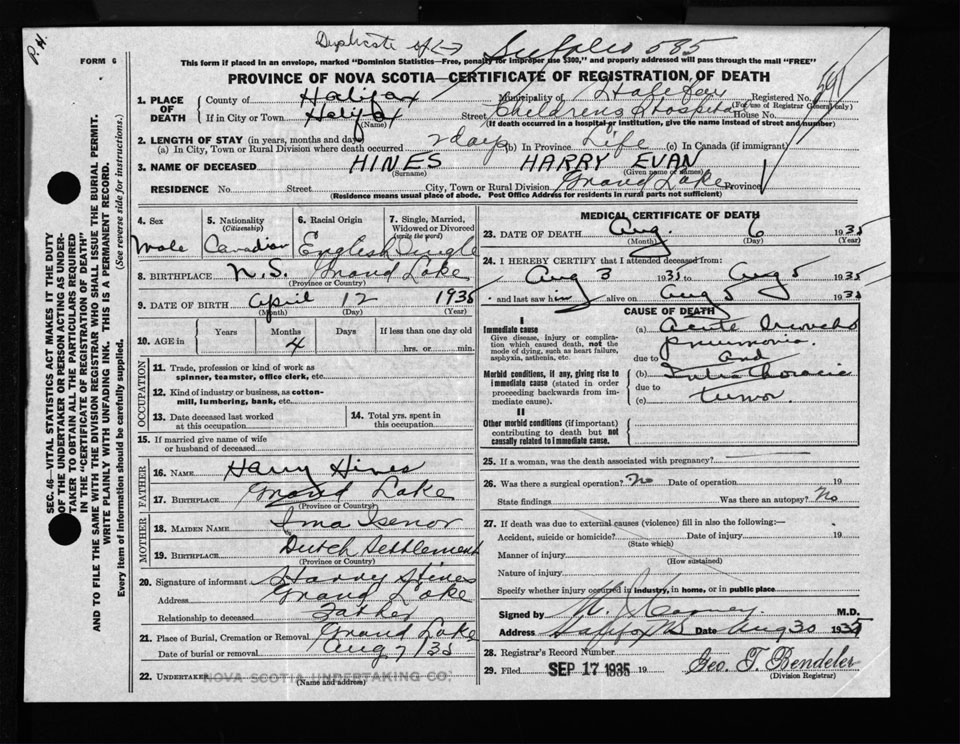 P. H.
Duplicate of
585
FORM 6
This form if placed in an envelope, marked "Dominion Statistics—Free, penalty for improper use $300," and properly addressed will pass through the mail "FREE"
PROVINCE OF NOVA SCOTIA—CERTIFICATE OF REGISTRATION OF DEATH
1. PLACE OF DEATH
County of Halifax Municipality of Halifax Registered No. 591
(For use of Registrar General only)
If in City or Town Halifax (Name) Street Children's Hospital House No.
(If death occurred in a hospital or institution, give the name instead of street and number)
2. LENGTH OF STAY (in years, months and days)
(a) In City, Town or Rural Division where death occurred 2 days (b) In Province Life (c) In Canada (if immigrant)
3. NAME OF DECEASED HINES HARRY EVAN
(Surname) (Given name or names)
RESIDENCE No. Street City, Town or Rural Division Grand Lake Province
(Residence means usual place of abode. Post Office Address for residents in rural parts not sufficient)
4. Sex Male
5. Nationality (Citizenship) Canadian
6. Racial Origin English
7. Single, Married, Widowed or Divorced (write the word) Single
8. BIRTHPLACE N.S. Grand Lake
(Province or Country)
9. DATE OF BIRTH April 12 1935
(Month) (Day) (Year)
10. AGE in Years Months Days If less than one day old
4 hrs. or min.
OCCUPATION
11. Trade, profession or kind of work as spinner, teamster, office clerk, etc.
12. Kind of industry or business, as cotton-mill, lumbering, bank, etc.
13. Date deceased last worked at this occupation
14. Total yrs. spent in this occupation
15. If married give name of wife or husband of deceased
FATHER
16. NAME Harry Hines
17. BIRTHPLACE Grand Lake
(Province or Country)
MOTHER
18. MAIDEN NAME Ima Isenor
19. BIRTHPLACE Dutch Settlement
(Province or Country)
20. Signature of informant Harry Hines
Address Grand Lake
Relationship to deceased Father
21. Place of Burial, Cremation or Removal Grand Lake
Date of burial or removal Aug 7/35
22. UNDERTAKER NOVA SCOTIA UNDERTAKING CO.
(Name and address)
MEDICAL CERTIFICATE OF DEATH
23. DATE OF DEATH Aug. 6 1935
(Month) (Day) (Year)
24. I HEREBY CERTIFY that I attended deceased from:
Aug 3 1935 to Aug 5 1935
and last saw him alive on Aug 5 1935
CAUSE OF DEATH
I
Immediate cause
Give disease, injury or complication which caused death, not the mode of dying, such as heart failure, asphyxia, asthenia, etc.
(a) Acute Broncho
pneumonia.
due to and
Morbid conditions, if any, giving rise to immediate cause (stated in order proceeding backwards from immediate cause).
(b) Intra thoracic
due to
(c) tumor.
II
Other morbid conditions (if important) contributing to death but not causally related to immediate cause.
25. If a woman, was the death associated with pregnancy?
26. Was there a surgical operation? No Date of operation 19
State findings Was there an autopsy? No
27. If death was due to external causes (violence) fill in also the following:—
Accident, suicide or homicide? Date of injury 19
(State which)
Manner of injury
(How sustained)
Nature of injury
Specify whether injury occurred in industry, in home, or in public place
Signed by M.D.
Address Halifax NS Date Aug 30 1935
28. Registrar's Record Number
29. Filed SEP 17 1935 19 Geo. T. Bendeler
(Division Registrar)
SEC. 46—VITAL STATISTICS ACT MAKES IT THE DUTY
OF THE UNDERTAKER OR PERSON ACTING AS UNDER-
TAKER TO OBTAIN ALL THE PARTICULARS REQUIRED
IN THE "CERTIFICATE OF REGISTRATION OF DEATH"
AND TO FILE THE SAME WITH THE DIVISION REGISTRAR WHO SHALL ISSUE THE BURIAL PERMIT.
WRITE PLAINLY WITH UNFADING INK. THIS IS A PERMANENT RECORD.
Every item of information should be carefully supplied. (See reverse side for instructions.)